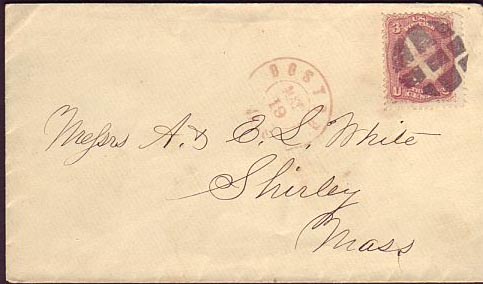 3
U
BOSTON
MAY
19
Messrs A. & E. L. White
Shirley
Mass